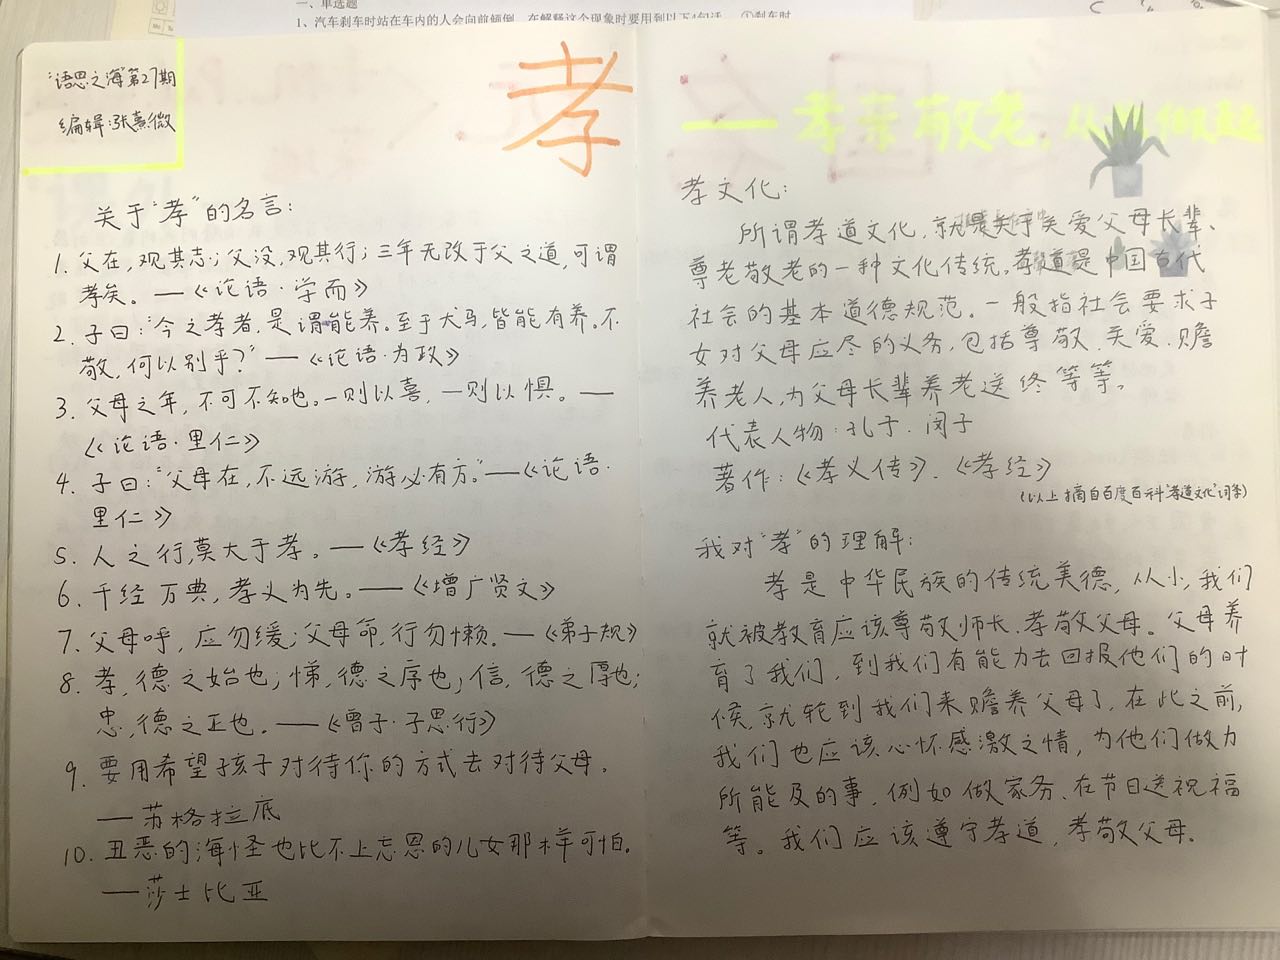 一、单选题
1、汽车刹车时站在车内的人会向前倾倒，在解释这个现象时要用到以下4句话
"语思之海"第27期
编辑：张熹微
孝
——孝亲敬老，从我做起
关于"孝"的名言：
1. 父在，观其志；父没，观其行；三年无改于父之道，可谓
孝矣。——《论语·学而》
2. 子曰："今之孝者，是谓能养。至于犬马，皆能有养。不
敬，何以别乎？"——《论语·为政》
3. 父母之年，不可不知也。一则以喜，一则以惧。——
《论语·里仁》
4. 子曰："父母在，不远游，游必有方。"——《论语·
里仁》
5. 人之行，莫大于孝。——《孝经》
6. 千经万典，孝义为先。——《增广贤文》
7. 父母呼，应勿缓；父母命，行勿懒。——《弟子规》
8. 孝，德之始也；悌，德之序也；信，德之厚也；
忠，德之正也。——《曾子·子思行》
9. 要用希望孩子对待你的方式去对待父母。
——苏格拉底
10. 丑恶的海怪也比不上忘恩的儿女那样可怕。
——莎士比亚
孝文化：
所谓孝道文化，就是关于关爱父母长辈、
尊老敬老的一种文化传统。孝道是中国古代
社会的基本道德规范。一般指社会要求子
女对父母应尽的义务，包括尊敬、关爱、赡
养老人，为父母长辈养老送终等等。
代表人物：孔子、闵子
著作：《孝义传》、《孝经》
（以上摘自百度百科"孝道文化"词条）
我对"孝"的理解：
孝是中华民族的传统美德，从小，我们
就被教育应该尊敬师长、孝敬父母。父母养
育了我们，到我们有能力去回报他们的时
候，就轮到我们来赡养父母了，在此之前，
我们也应该心怀感激之情，为他们做力
所能及的事，例如做家务、在节日送祝福
等。我们应该遵守孝道，孝敬父母。